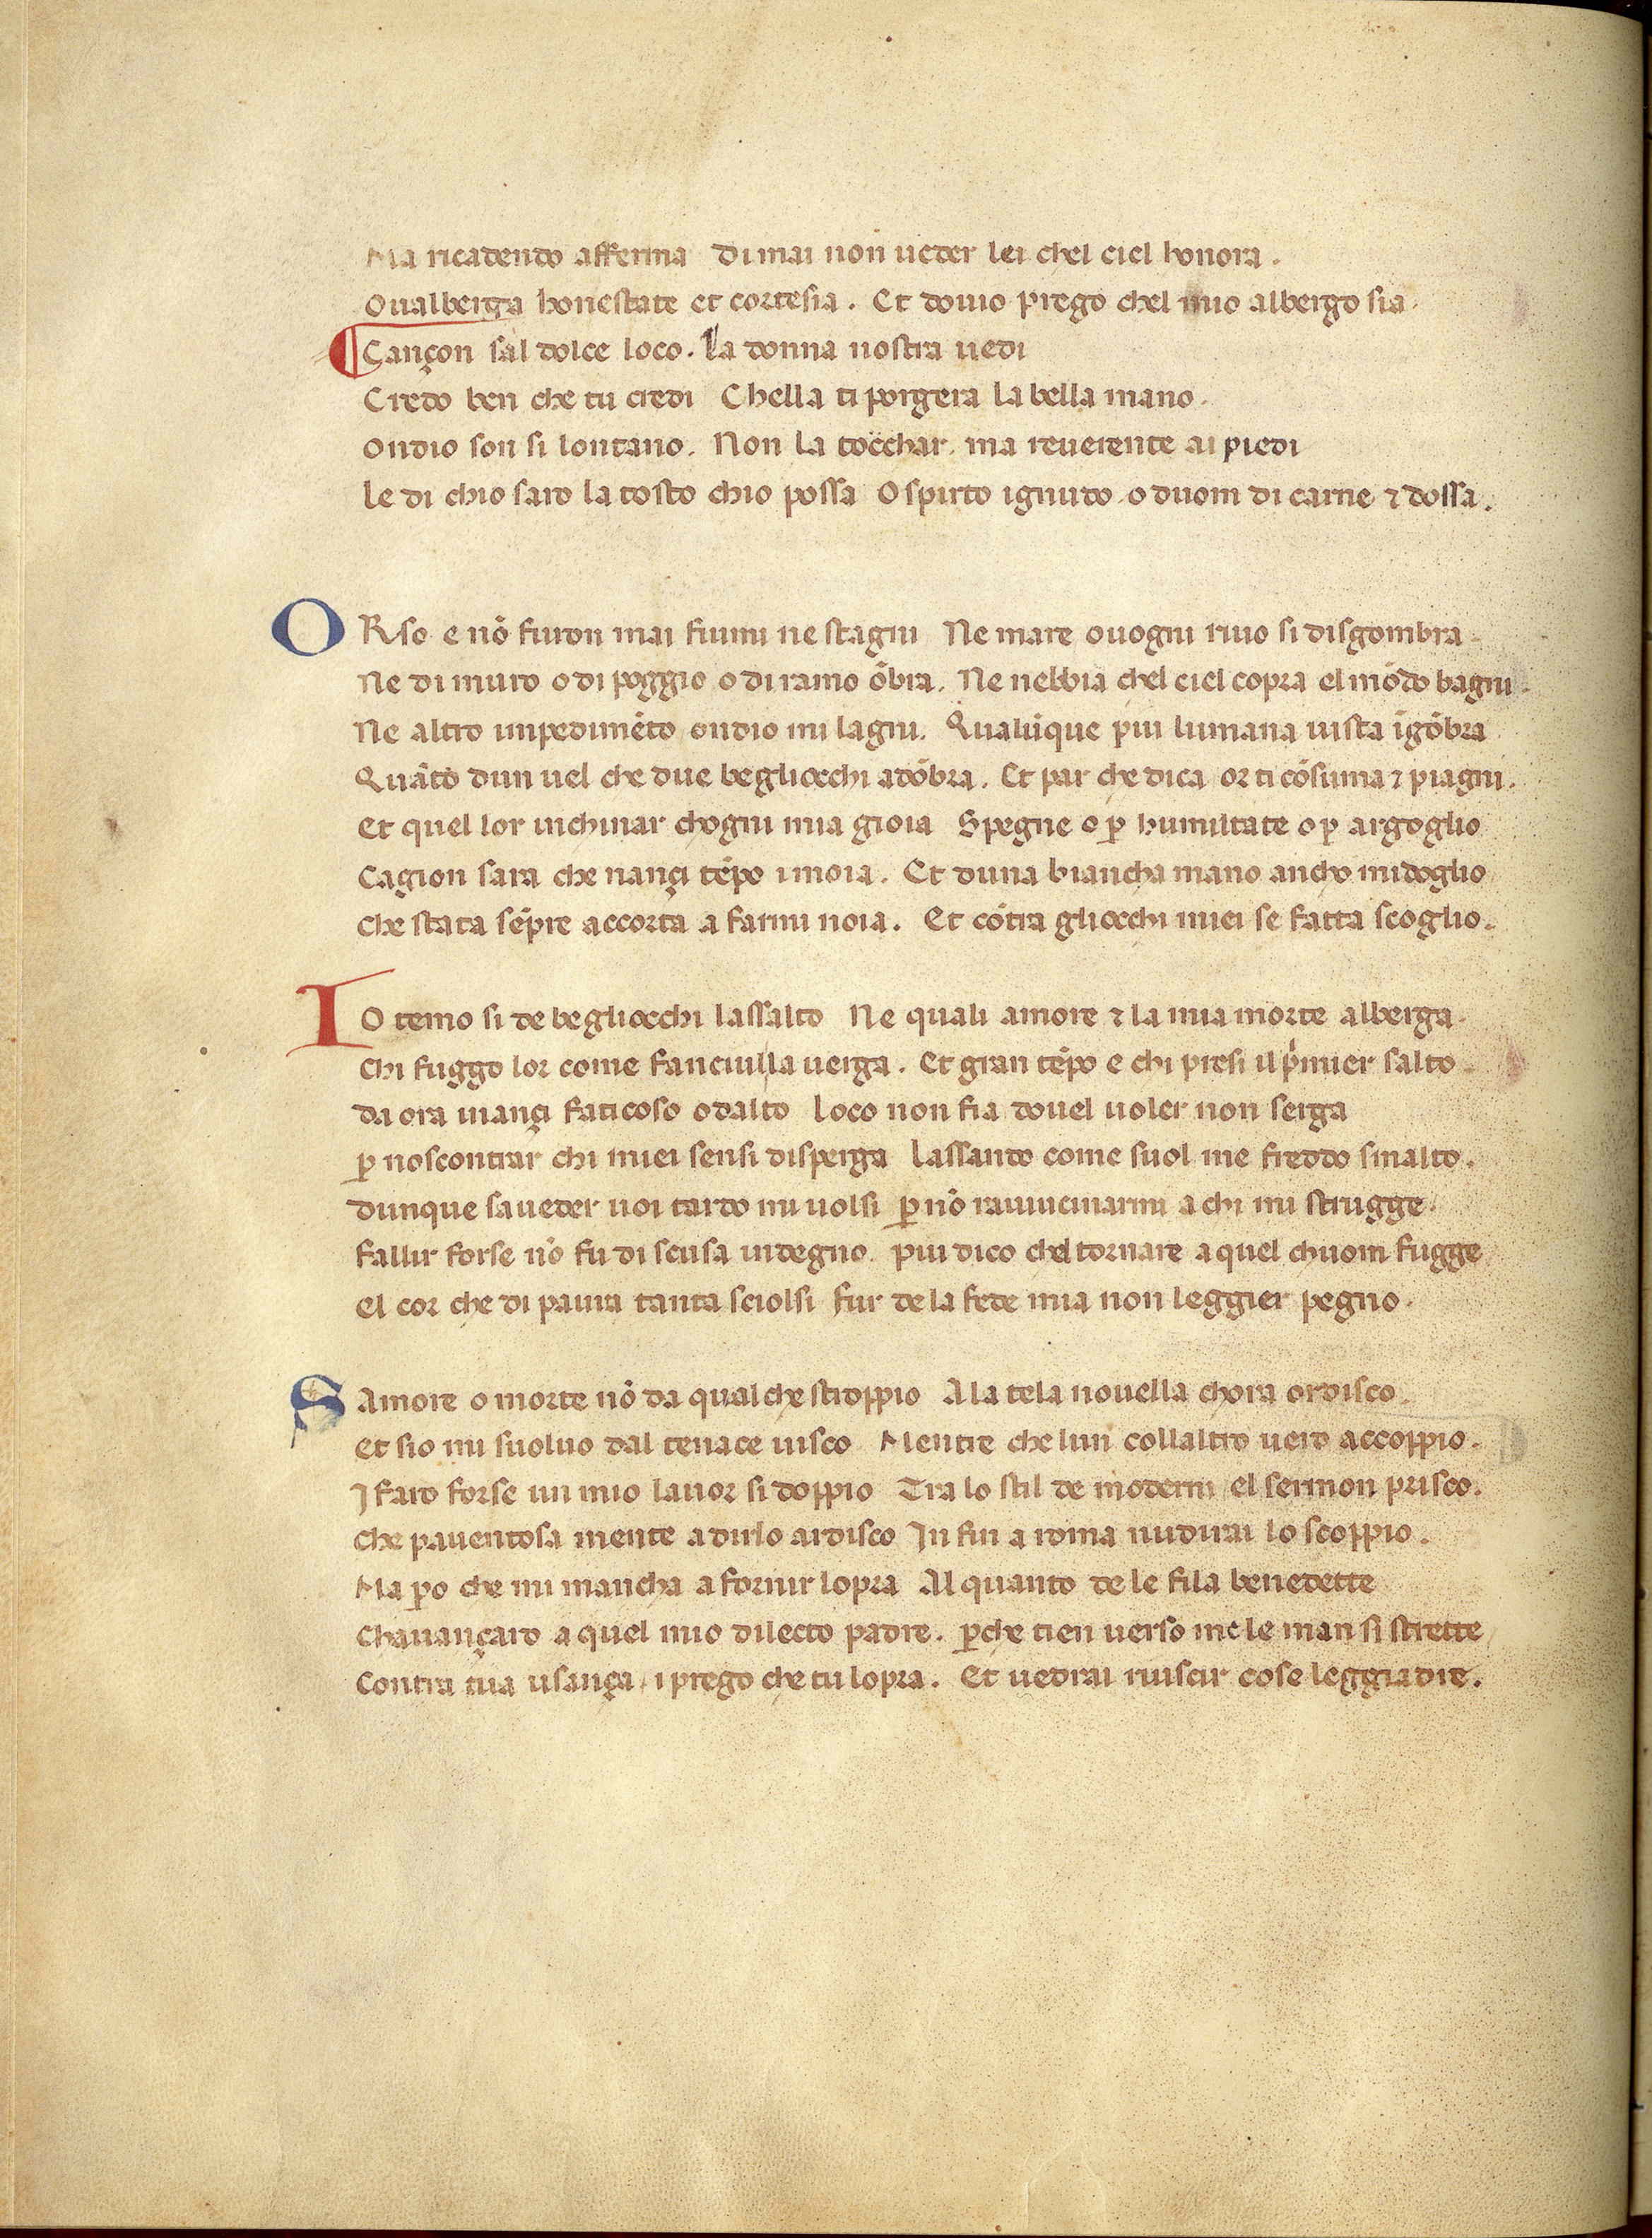 Ma ricadendo afferma Di mai non ueder lei chel ciel honora.
Oualberga honestate et cortesia. Et douio prego chel mio albergo sia.
Cançon sal dolce loco. La donna nostra uedi
Credo ben che tu credi Chella ti porgera la bella mano.
Ondio son si lontano. Non la tocchar. ma reuerente ai piedi
Le di chio saro la tosto chio possa O spirto ignudo o duom di carne ⁊ dossa.
ORso e nō furon mai fiumi ne stagni Ne mare ouogni riuo si disgombra.
Ne di muro o di poggio o di ramo ōbra. Ne nebbia chel ciel copra el mōdo bagni.
Ne altro impedimēto ondio mi lagni. Qualūque piu lumana uista īgōbra.
Quāto dun uel che due begliocchi adōbra. Et par che dica or ti cōsuma ⁊ piagni.
Et quel lor inchinar chogni mia gioia Spegne o ꝑ humiltate o ꝑ argoglio
Cagion sara che nançi tēpo i moia. Et duna biancha mano ancho mi doglio
Che stata sēpre accorta a farmi noia. Et cōtra gliocchi miei se fatta scoglio.
IO temo si de begliocchi lassalto Ne quali amore ⁊ la mia morte alberga.
Chi fuggo lor come fanciul la uerga. Et gran tēpo e chi presi il pͥmier salto.
Da ora inançi faticoso od alto Loco non fia douel uoler non serga
ꝑ no scontrar chi miei sensi disperga Lassando come suol me freddo smalto.
Dunque sa ueder uoi tardo mi uolsi ꝑ nō rauuicinarmi a chi mi strugge.
Fallir forse nō fu di scusa indegno. Piu dico chel tornare a quel chuom fugge
El cor che di paura tanta sciolsi Fur de la fede mia non leggier pegno.
SAmore o morte nō da qualche stroppio A la tela nouella chora ordisco.
Et sio mi suoluo dal tenace uisco Mentre che lun collaltro uero accoppio.
I faro forse un mio lauor si doppio Tra lo stil de moderni el sermon prisco.
Che pauentosa mente a dirlo ardisco In fin a roma nudirai lo scoppio.
Ma po che mi mancha a fornir lopra Al quanto de le fila benedette
Chauançaro a quel mio dilecto padre. ꝑche tien uerso me le man si strette
Contra tua usança, i prego che tu lopra. Et uedrai riuscir cose leggiadre.